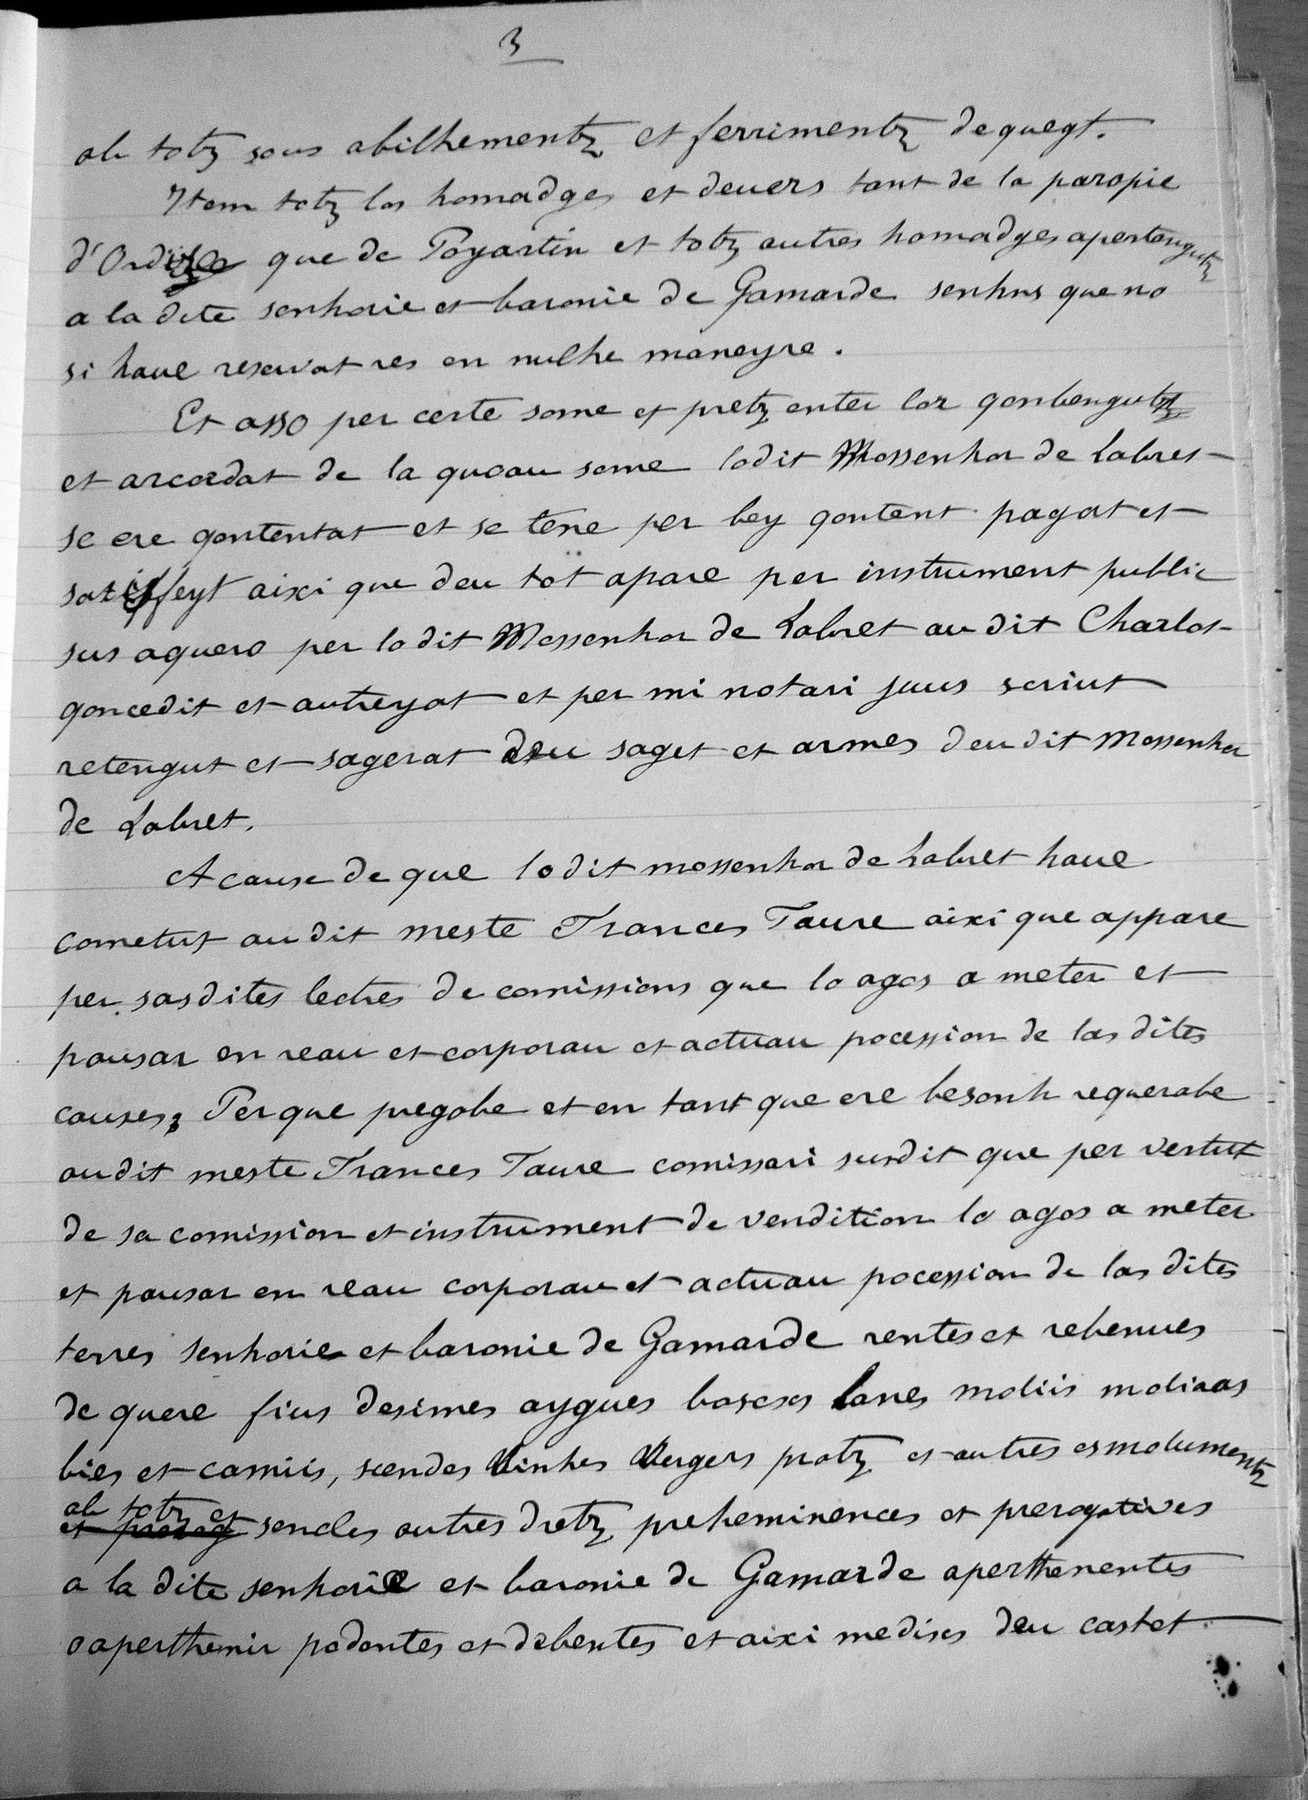 3
ab totz sous abilhementz et ferrimentz dequegt.
Item totz los homadges et devers tant de la paropie
que de Poyartin et totz autres homadges apertengutz
a la dite senhorie et baronie de Gamarde senhns que no
si haue reservat res en nulhe maneyre.
Et asso per certe some et pretz enter lor gonbengutz
et arcordat de la quoau some lodit Mossenhor de Labret
se ere gontentat et se tene per bey gontent pagat et
satisffeyt aixi que deu tot apare per instrument public
sus aquero per lo dit Mossenhor de Labret au dit Charlot
goncedit et autreyat et per mi notari juus scriut
retengut et sagerat deu saget et armes deu dit Mossenhor
de Labret.
A cause de que lo dit mossenhor de Labret haue
cometut au dit meste Frances Faure aixi que appare
per sasdites lectres de comissions que lo agos a meter et
pausar en reau et corporau et actuau pocession de las dites
causes; Per que pregabe et en tant que ere besonh requerabe
audit meste Frances Faure comissari susdit que per vertut
de sa comission et instrument de vendition lo agos a meter
et pausar en reau corporau et actuau pocession de las dites
terres senhorie et baronie de Gamarde rentes et rebenues
de quere fius desimes aygues boscxs lanes moliis moliaas
bies et camiis, scendes Vinhes Vergers pratz et autres esmolumentz
ab totz et sencles autres dretz preheminences et prerogatives
a la dite senhorie et baronie de Gamarde aperthenentes
o aperthenir podentes et debentes et aixi medixs deu castet